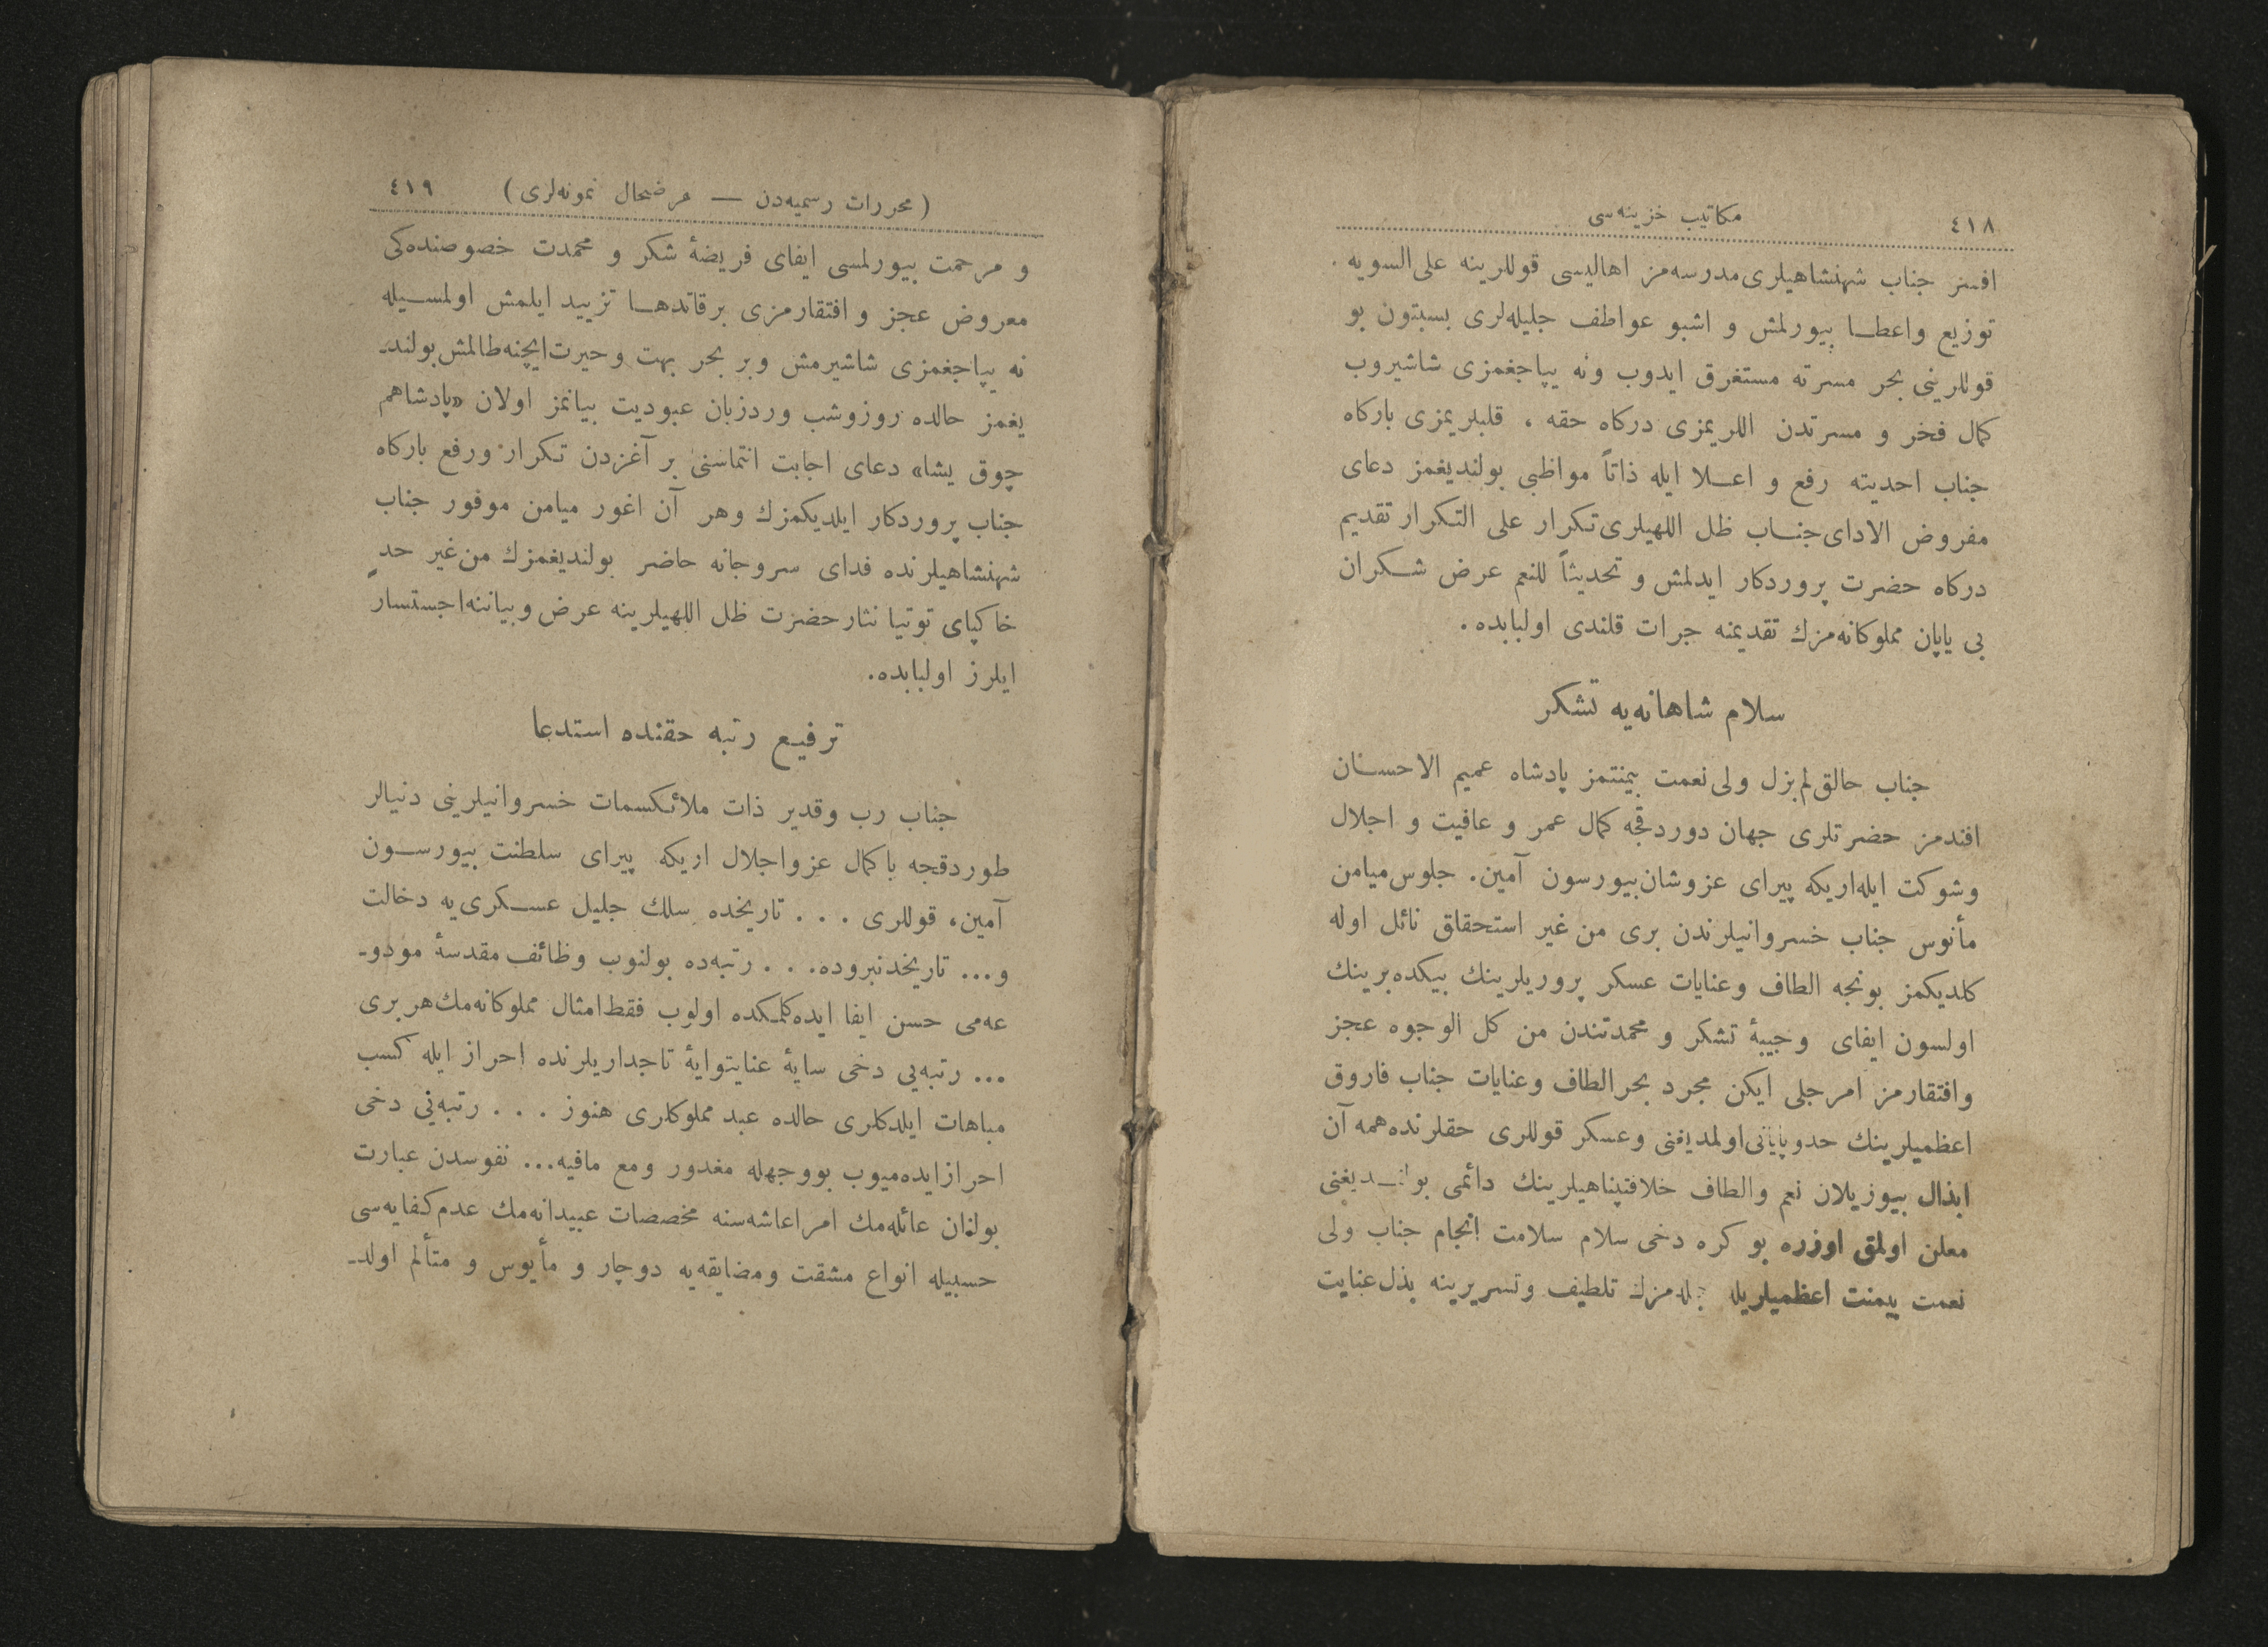 ٤١٨
مكاتيب خزينه‌سى
افسز جناب شهنشاهيلرى مدرسه‌مز اهاليسى قوللرينه على السويه .
توزيع واعطـا بيورلمش و اشبو عواطف جليله‌لرى بسبتون بو
قوللرينى بحر مسرته مستغرق ايدوب ونه يپاجغمزى شاشيروب
كمال فخر و مسرتدن اللريمزى دركاه حقه ، قلبلريمزى باركاه
جناب احديته رفع و اعـلا ايله ذاتاً مواظبى بولنديغمز دعاى
مفروض الاداى جنـاب ظل اللهيلرى تكرار على التكرار تقديم
دركاه حضرت پروردكار ايدلمش و تحديثاً للنعم عرض شـكران
بى ياپان مملوكانه‌مزك تقديمنه جرات قلندى اولبابده .
سلام شاهانه‌يه تشكر
جناب حالق لم‌يزل ولى نعمت بيمنتمز پادشاه عميم الاحسـان
افندمز حضرتلرى جهان دوردقجه كمال عمر و عافيت و اجلال
وشوكت ايله اريكه پيراى عزوشان بيورسون آمين. جلوس ميامن
مأنوس جناب خسروانيلرندن برى من غير استحقاق نائل اوله
كلديكمز بونجه الطاف وعنايات عسكر پروريلرينك بيكده برينك
اولسون ايفاى وجيبۀ تشكر و محمدتندن من كل الوجوه عجز
وافتقارمز امرجلى ايكن مجرد بحر الطاف وعنايات جناب فاروق
اعظميلرينك حدوپايانى اولمديغنى وعسكر قوللرى حقلرنده همه آن
ابذال بيوزيلان نعم والطاف خلافتپناهيلرينك دائمى بولنـديغنى
معلن اولمق اوزره بو كره دخى سلام سلامت انجام جناب ولى
نعمت بيمنت اعظميلريله جمله‌مزك تلطيف وتسريرينه بذل عنايت
(محررات رسميه‌دن — عرضحال نمونه‌لرى)
٤١٩
و مرحمت بيورلمسى ايفاى فريضۀ شكر و محمدت خصوصنده‌كى
معروض عجز و افتقارمزى برقاتدهـا تزييد ايلمش اولمسـيله
نه يپاجغمزى شاشيرمش وبر بحر بهت وحيرت ايچنه طالمش بولند‌ـ
يغمز حالده روزوشب وردزبان عبوديت بيانمز اولان «پادشاهم
چوق يشا» دعاى اجابت انتماسنى بر آغزدن تكرار ورفع باركاه
جناب پروردكار ايلديكمزك وهر آن اغور ميامن موفور جناب
شهنشاهيلرنده فداى سروجانه حاضر بولنديغمزك من غير حدٍ
خاكپاى توتيا نثار حضرت ظل اللهيلرينه عرض وبياننه اجستسار
ايلرز اولبابده.
ترفيـع رتبه حقنده استدعا
جناب رب وقدير ذات ملائكسمات خسروانيلرينى دنيالر
طوردقجه باكمال عزواجلال اريكه پيراى سلطنت بيورسـون
آمين، قوللرى ... تاريخده سلك جليل عسـكرى‌يه دخالت
و... تاريخدنبروده. . . رتبه‌ده بولنوب وظائف مقدسۀ مودو‌ـ
عه‌مى حسن ايفا ايده‌كلمكده اولوب فقط امثال مملوكانه‌مك هربرى
... رتبه‌يى دخى سايۀ عنايتوايۀ تاجداريلرنده احراز ايله كسب
مباهات ايلدكلرى حالده عبد مملوكلرى هنوز ... رتبه‌نى دخى
احرازايده‌ميوب بووجهله مغدور ومع مافيه... نفوسدن عبارت
بولنان عائله‌مك امراعاشه‌سنه مخصصات عبيدانه‌مك عدم كفايه‌سى
حسبيله انواع مشقت ومضايقه‌يه دوچار و مأيوس و متألم اولد‌ـ